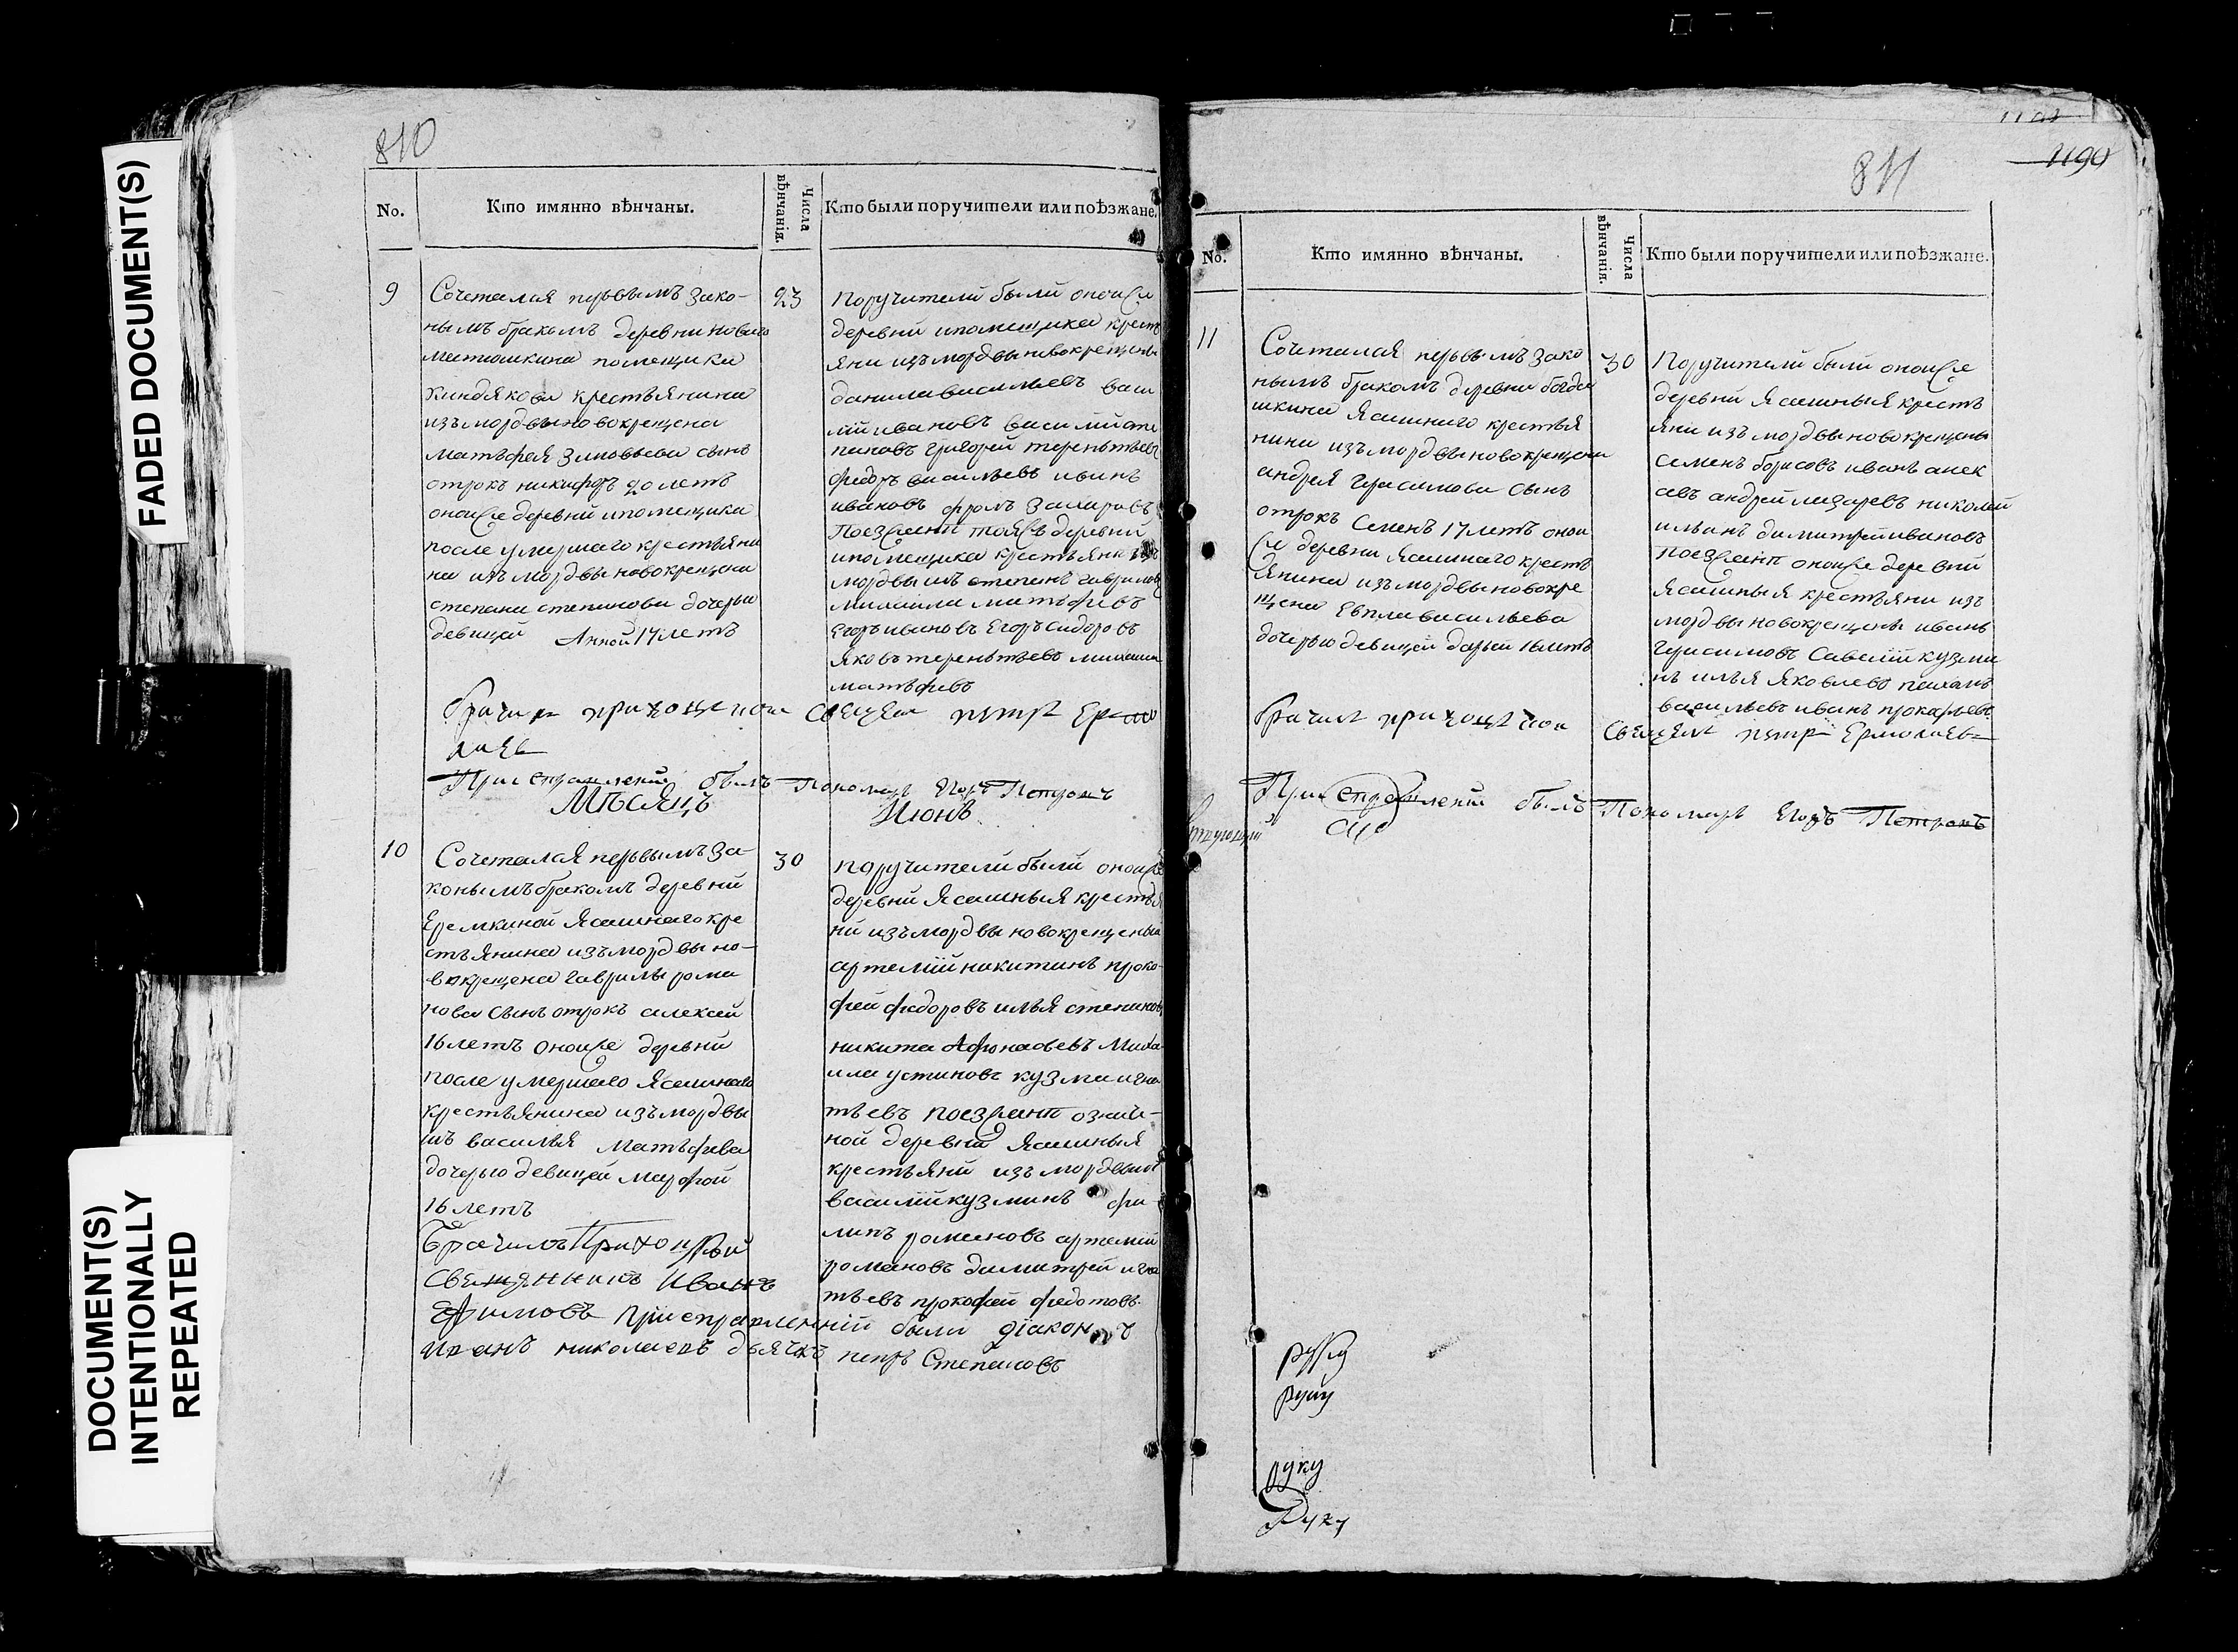 FADED DOCUMENT(S)
DOCUMENT(S)
INTENTIONALLY
REPEATED
810
No.
Кто имянно вѣнчаны.
Числа
вѣнчанія.
Кто были поручители или поѣзжане.
9
Сочетался первымъ зако-
нымъ бракомъ деревни новаго
матюшкина помещика
киндякова крестьянина
изъ мордвы новокрещена
матьфея зиновьева сынъ
отрокъ никифоръ 20 летъ
оноиже деревни и помещика
после умершаго крестьяни
на изъ мордвы новокрещена
степана степанова дочерью
девицей Анной 17 летъ
23
поручители были оноиже
деревни и помещика кресть
яни изъ мордвы новокрещены
данила васильевъ васи
лій ивановъ василій сте
пановъ григорей тереньтьевъ
федоръ васильевъ иванъ
ивановъ фролъ захаровъ
Поезжаня тояжъ деревни
и помещика крестьяни изъ
мордвы степанъ гавриловъ
михаила матьфевъ
Егоръ ивановъ Егоръ сидоровъ
яковъ тереньтьевъ михаила
матьфевъ
Брачил приходцкои Свещен петръ Ермо
лаевъ
При справлении былъ Пономарь Егоръ Петровъ
Мѣсяцъ Июнь
10
Сочетался первымъ за-
конымъ бракомъ деревни
Еремкиной Ясашнаго кре
стьянина изъ мордвы но-
вокрещена гаврилы рома
нова сынъ отрокъ алексей
16 летъ оноиже деревни
после умершаго Ясашнаго
крестьянина изъ мордвы
василья Матьфева
дочерью девицей марфой
16 летъ
30
поручители были оноиже
деревни Ясашныя крестья
ни изъ мордвы новокрещены
артемій никитинъ проко-
фей федоровъ илья степановъ
никита Афонасьевъ Миха-
ила устиновъ кузма игна
тьевъ поезжаня означе-
ной деревни Ясашныя
крестьяни изъ мордвы
василій кузминъ фи-
липъ романовъ артемій
романовъ димитрей игна
тьевъ прокофей федотовъ
Брачилъ Приходской
Священникъ Иванъ
Ефимовъ при справлении были діаконъ
Иванъ николаевъ дьячкъ петръ Степановъ
811
1190
No.
Кто имянно вѣнчаны.
Числа
вѣнчанія.
Кто были поручители или поѣзжане.
11
Сочетался первымъ зако
нымъ бракомъ деревни богда
шкина Ясашнаго крестья
нина изъ мордвы новокрещена
андрея герасимова сынъ
отрокъ Семенъ 17 летъ онои
же деревни Ясашнаго кресть
янина изъ мордвы новокре
щена Евпла васильева
дочерью девицей дарьей 16 летъ
30
Поручители были оноиже
деревни Ясашныя кресть
яни изъ мордвы новокрещены
семенъ борисовъ иванъ алек
авъ андрей лазаревъ николай
ильинъ димитрей ивановъ
поезжаня оноиже деревни
ясашныя крестьяни изъ
мордвы новокрещены иванъ
герасимовъ Савелій кузми
нъ илья яковлевъ
васильевъ иванъ прокофьевъ
Брачилъ приходцкои Свещенъ петръ Ермолаевъ
При справлении былъ Пономарь Егоръ Петровъ
руку
руку
руку
Руку